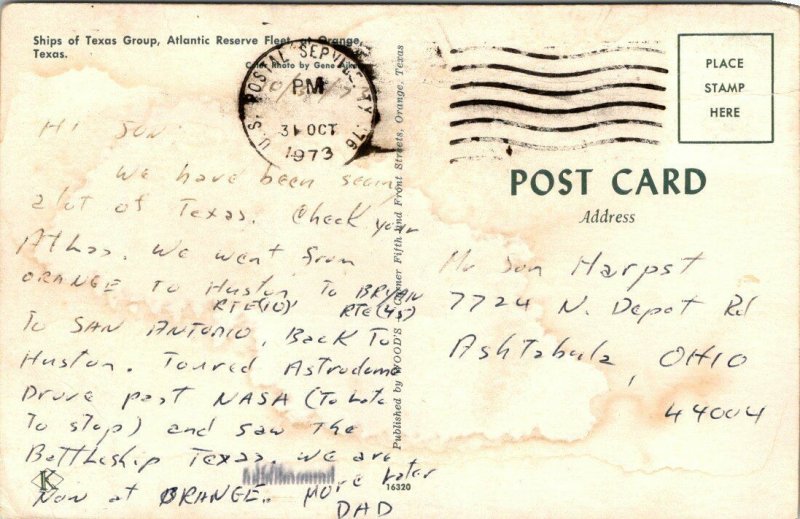 Ships of Texas Group, Atlantic Reserve Fleet, at Orange,
Texas.
Color Photo by Gene
U.S. POSTAL SERVICE 76
PM
31 OCT
1973
Hi Son:
We have been seeing
alot of Texas. Check your
Atlas. We went from
ORANGE To Huston To BRYAN
RTE(10) RTE(45)
To SAN ANTONIO, Back To
Huston. Toured Astrodome
Drove past NASA (To Late
To stop) and saw The
Battleship Texas. We are
Now at ORANGE. More Later
DAD
K
16320
Published by WOOD'S Corner Fifth and Front Streets, Orange, Texas
PLACE
STAMP
HERE
POST CARD
Address
Mr Harpst
7724 N. Depot Rd
Ashtabula, OHIO
44004